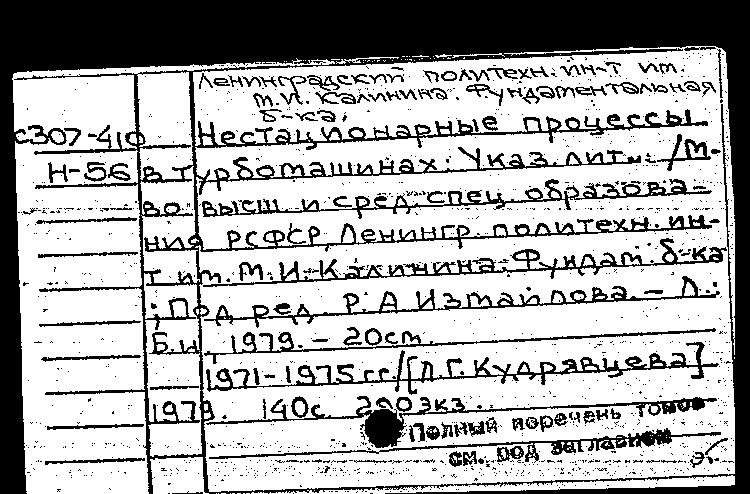 Ленинградский политехн. ин-т им.
М.И. Калинина. Фундаментальная
б-ка.
С307-410 Нестационарные процессы
Н-56 в турбомашинах: Указ. лит.: /М-
во высш и сред. спец. образова-
ния РСФСР, Ленингр. политехн. ин-
т им. М.И. Калинина. Фундам. б-ка
; Под ред. Р. А Измайлова. – Л.:
Б.и, 1979. – 20см.
1971-1975 гг./[Л.Г. Кудрявцева]
1979. 140с. 200экз.
Полный перечень томов
см. под заглавием